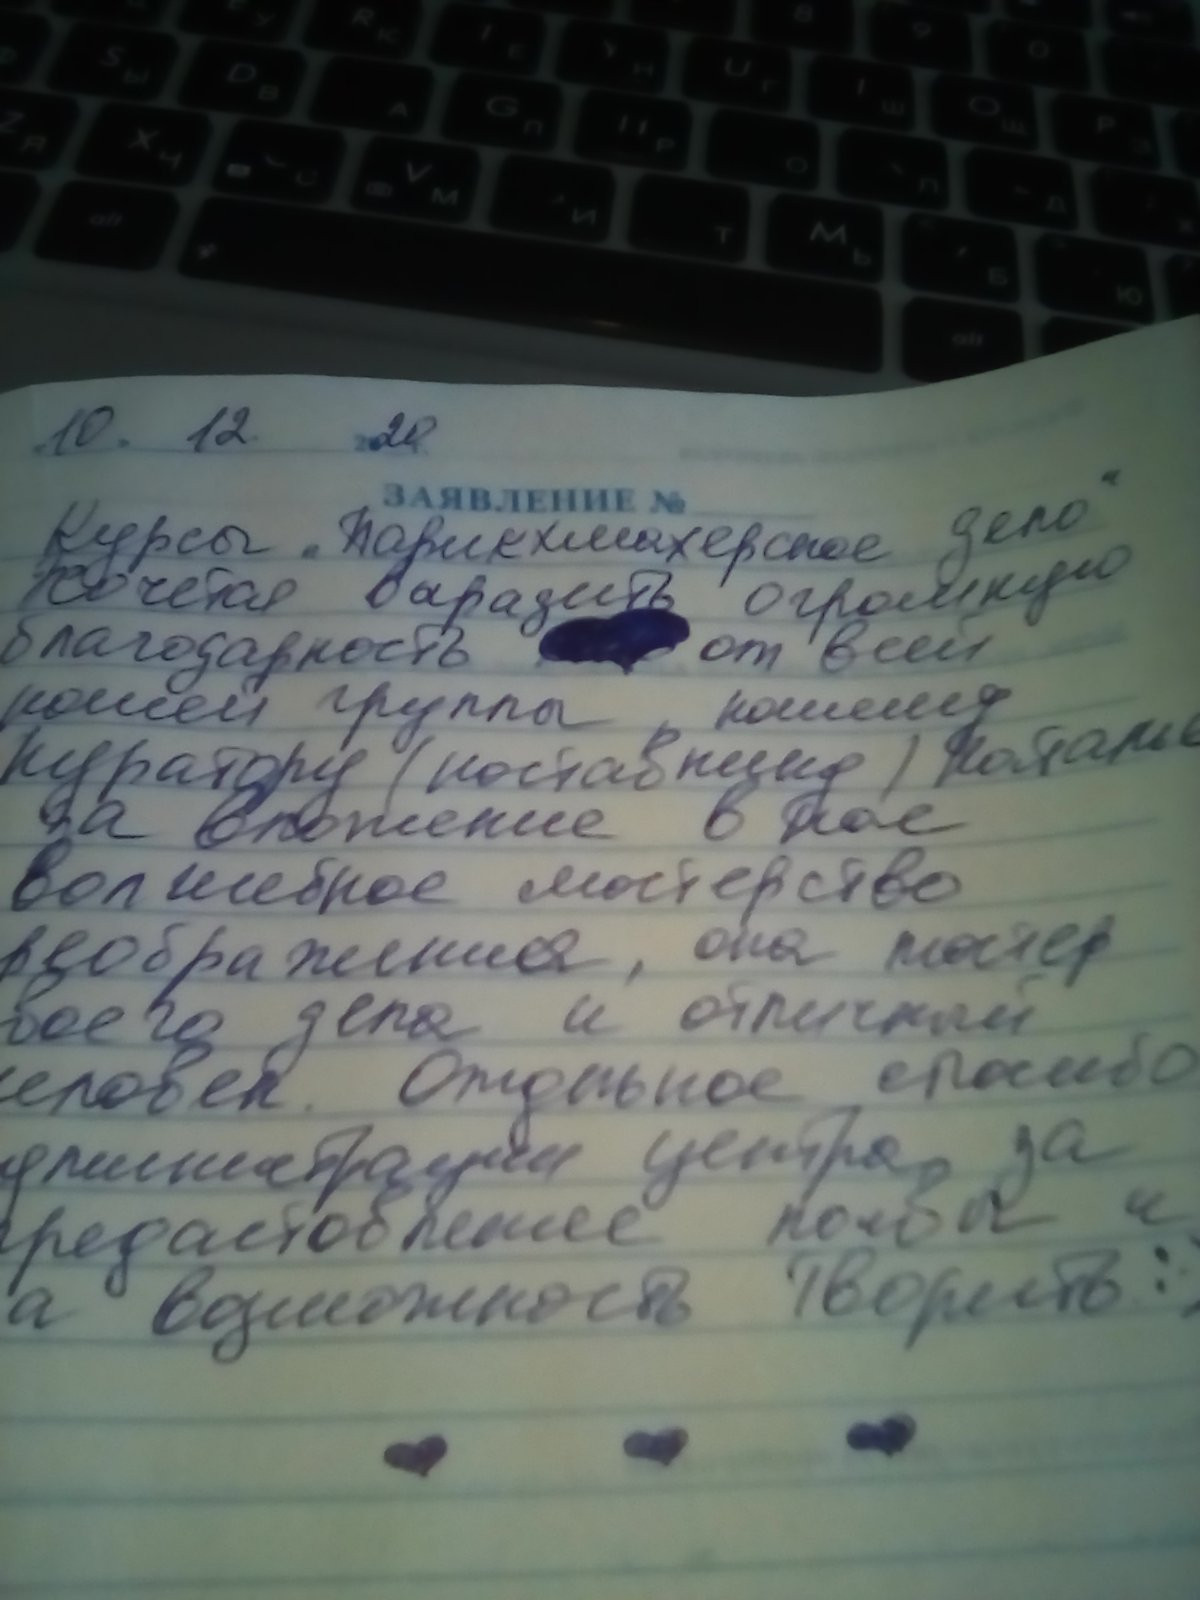 10. 12 2020
ЗАЯВЛЕНИЕ №
Курсы „Парикхмахерское дело“
Хочется выразить огромную
благодарность от всей
нашей группы, нашему
куратору (наставнику) Наталье
за вложение в нас
волшебное мастерство
реображения, она мастер
воего дела и отличный
человек. Отдельное спасибо
дминистрации центра, за
предастовление колбы и
а возможность Творить :)